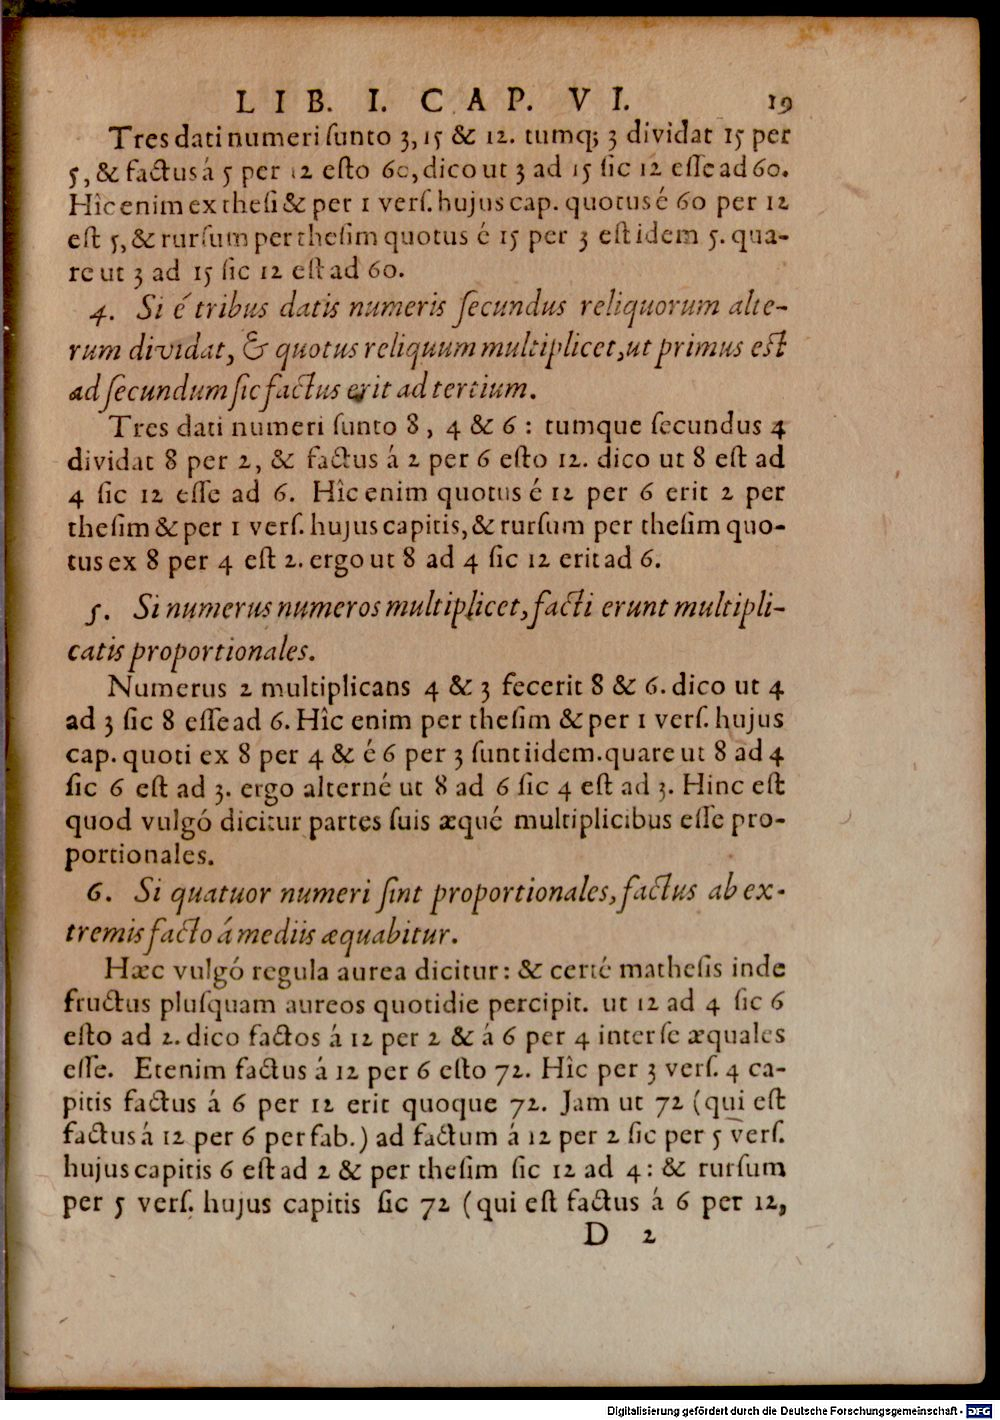 LIB. I. CAP. VI. 19
Tres dati numeri ſunto 3, 15 & 12. tumq; 3 dividat 15 per
5, & factus á 5 per 12 eſto 60, dico ut 3 ad 15 ſic 12 eſſe ad 60.
Hîc enim ex theſi & per 1 verſ. hujus cap. quotus é 60 per 12
eſt 5, & rurſum per theſim quotus é 15 per 3 eſt idem 5. qua-
re ut 3 ad 15 ſic 12 eſt ad 60.
4. Si é tribus datis numeris ſecundus reliquorum alte-
rum dividat, & quotus reliquum multiplicet, ut primus eſt
ad ſecundum ſic factus erit ad tertium.
Tres dati numeri ſunto 8, 4 & 6: tumque ſecundus 4
dividat 8 per 2, & factus á 2 per 6 eſto 12. dico ut 8 eſt ad
4 ſic 12 eſſe ad 6. Hîc enim quotus é 12 per 6 erit 2 per
theſim & per 1 verſ. hujus capitis, & rurſum per theſim quo-
tus ex 8 per 4 eſt 2. ergo ut 8 ad 4 ſic 12 erit ad 6.
5. Si numerus numeros multiplicet, facti erunt multipli-
catis proportionales.
Numerus 2 multiplicans 4 & 3 fecerit 8 & 6. dico ut 4
ad 3 ſic 8 eſſe ad 6. Hîc enim per theſim & per 1 verſ. hujus
cap. quoti ex 8 per 4 & é 6 per 3 ſunt iidem. quare ut 8 ad 4
ſic 6 eſt ad 3. ergo alterné ut 8 ad 6 ſic 4 eſt ad 3. Hinc eſt
quod vulgó dicitur partes ſuis æqué multiplicibus eſſe pro-
portionales.
6. Si quatuor numeri ſint proportionales, factus ab ex-
tremis facto á mediis æquabitur.
Hæc vulgó regula aurea dicitur: & certé matheſis inde
fructus pluſquam aureos quotidie percipit. ut 12 ad 4 ſic 6
eſto ad 2. dico factos á 12 per 2 & á 6 per 4 inter ſe æquales
eſſe. Etenim factus á 12 per 6 eſto 72. Hîc per 3 verſ. 4 ca-
pitis factus á 6 per 12 erit quoque 72. Jam ut 72 (qui eſt
factus á 12 per 6 per fab.) ad factum á 12 per 2 ſic per 5 verſ.
hujus capitis 6 eſt ad 2 & per theſim ſic 12 ad 4: & rurſum
per 5 verſ. hujus capitis ſic 72 (qui eſt factus á 6 per 12,
D 2
Digitalisierung gefördert durch die Deutsche Forschungsgemeinschaft - DFG